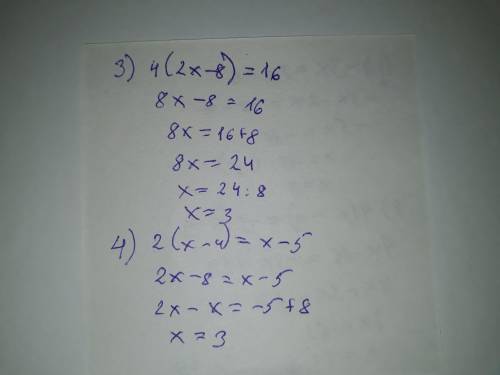 3) 4(2x-8)=16
8x-8=16
8x=16+8
8x=24
x=24:8
x=3
4) 2(x-4)=x-5
2x-8=x-5
2x-x=-5+8
x=3